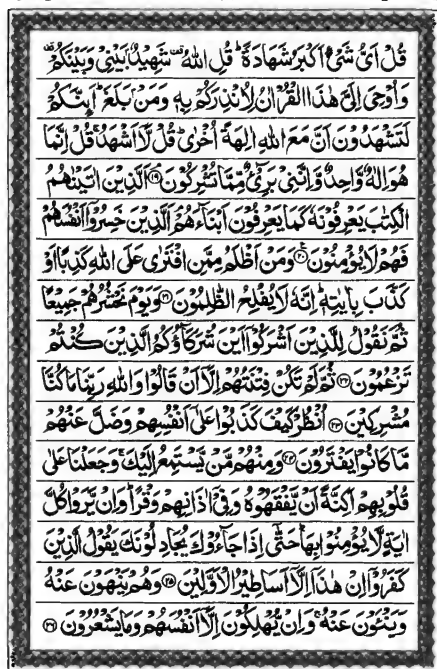 قُلْ اَىُّ شَىْءٍ اَكْبَرُ شَهَادَةً ؕ قُلِ اللّٰهُ ۙ شَهِيْدٌۢ بَيْنِىْ وَبَيْنَكُمْ
وَاُوْحِىَ اِلَىَّ هٰذَا الْقُرْاٰنُ لِاُنْذِرَكُمْ بِهٖ وَمَنْۢ بَلَغَ ؕ اَئِنَّكُمْ
لَتَشْهَدُوْنَ اَنَّ مَعَ اللّٰهِ اٰلِهَةً اُخْرٰى ؕ قُلْ لَّاۤ اَشْهَدُ ۚ قُلْ اِنَّمَا
هُوَ اِلٰهٌ وَّاحِدٌ وَّاِنَّنِىْ بَرِىْٓءٌ مِّمَّا تُشْرِكُوْنَ ﴿۱۹﴾ اَلَّذِيْنَ اٰتَيْنٰهُمُ
الْكِتٰبَ يَعْرِفُوْنَهٗ كَمَا يَعْرِفُوْنَ اَبْنَآءَهُمْ ۘ اَلَّذِيْنَ خَسِرُوْۤا اَنْفُسَهُمْ
فَهُمْ لَا يُؤْمِنُوْنَ ﴿۲۰﴾ وَمَنْ اَظْلَمُ مِمَّنِ افْتَرٰى عَلَى اللّٰهِ كَذِبًا اَوْ
كَذَّبَ بِاٰيٰتِهٖ ؕ اِنَّهٗ لَا يُفْلِحُ الظّٰلِمُوْنَ ﴿۲۱﴾ وَيَوْمَ نَحْشُرُهُمْ جَمِيْعًا
ثُمَّ نَقُوْلُ لِلَّذِيْنَ اَشْرَكُوْۤا اَيْنَ شُرَكَآؤُكُمُ الَّذِيْنَ كُنْتُمْ
تَزْعُمُوْنَ ﴿۲۲﴾ ثُمَّ لَمْ تَكُنْ فِتْنَتُهُمْ اِلَّاۤ اَنْ قَالُوْا وَاللّٰهِ رَبِّنَا مَا كُنَّا
مُشْرِكِيْنَ ﴿۲۳﴾ اُنْظُرْ كَيْفَ كَذَبُوْا عَلٰٓى اَنْفُسِهِمْ وَضَلَّ عَنْهُمْ
مَّا كَانُوْا يَفْتَرُوْنَ ﴿۲۴﴾ وَمِنْهُمْ مَّنْ يَّسْتَمِعُ اِلَيْكَ ۚ وَجَعَلْنَا عَلٰى
قُلُوْبِهِمْ اَكِنَّةً اَنْ يَّفْقَهُوْهُ وَفِىْۤ اٰذَانِهِمْ وَقْرًا ؕ وَاِنْ يَّرَوْا كُلَّ
اٰيَةٍ لَّا يُؤْمِنُوْا بِهَا ؕ حَتّٰۤى اِذَا جَآءُوْكَ يُجَادِلُوْنَكَ يَقُوْلُ الَّذِيْنَ
كَفَرُوْۤا اِنْ هٰذَاۤ اِلَّاۤ اَسَاطِيْرُ الْاَوَّلِيْنَ ﴿۲۵﴾ وَهُمْ يَنْهَوْنَ عَنْهُ
وَيَنْئَوْنَ عَنْهُ ۚ وَاِنْ يُّهْلِكُوْنَ اِلَّاۤ اَنْفُسَهُمْ وَمَا يَشْعُرُوْنَ ﴿۲۶﴾